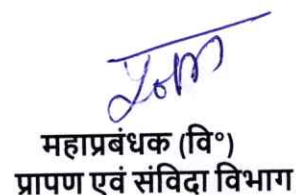 महाप्रबंधक (वि°)
प्रापण एवं संविदा विभाग